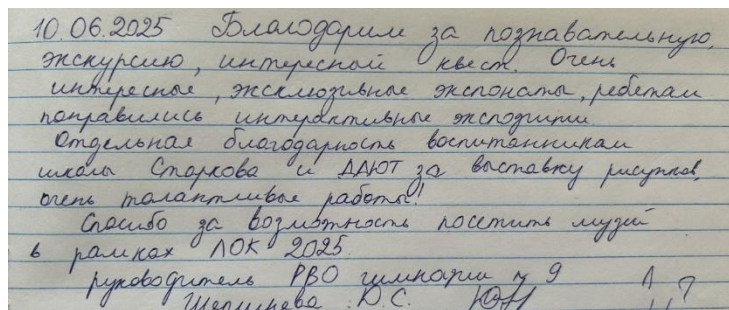 10.06.2025 Благодарим за познавательную,
экскурсию, интересный квест. Очень
интересные, эксклюзивные экспонаты, ребятам
понравились интерактивные
Отдельная благодарность воспитанникам
школы Старкова и ДДЮТ за выставку рисунков,
очень талантливые работы!
Спасибо за возможность посетить музей
в рамках ЛОК 2025
руководитель РВО гимназии № 9
Ю.С.